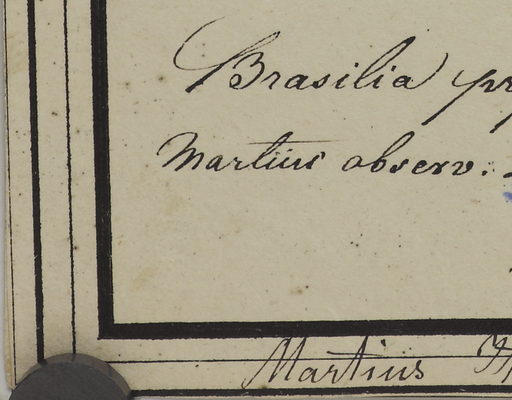 Brasilia pr
Martius observ.
Martius